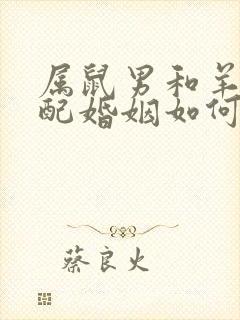 属鼠男和羊
配婚姻如何
蔡良火